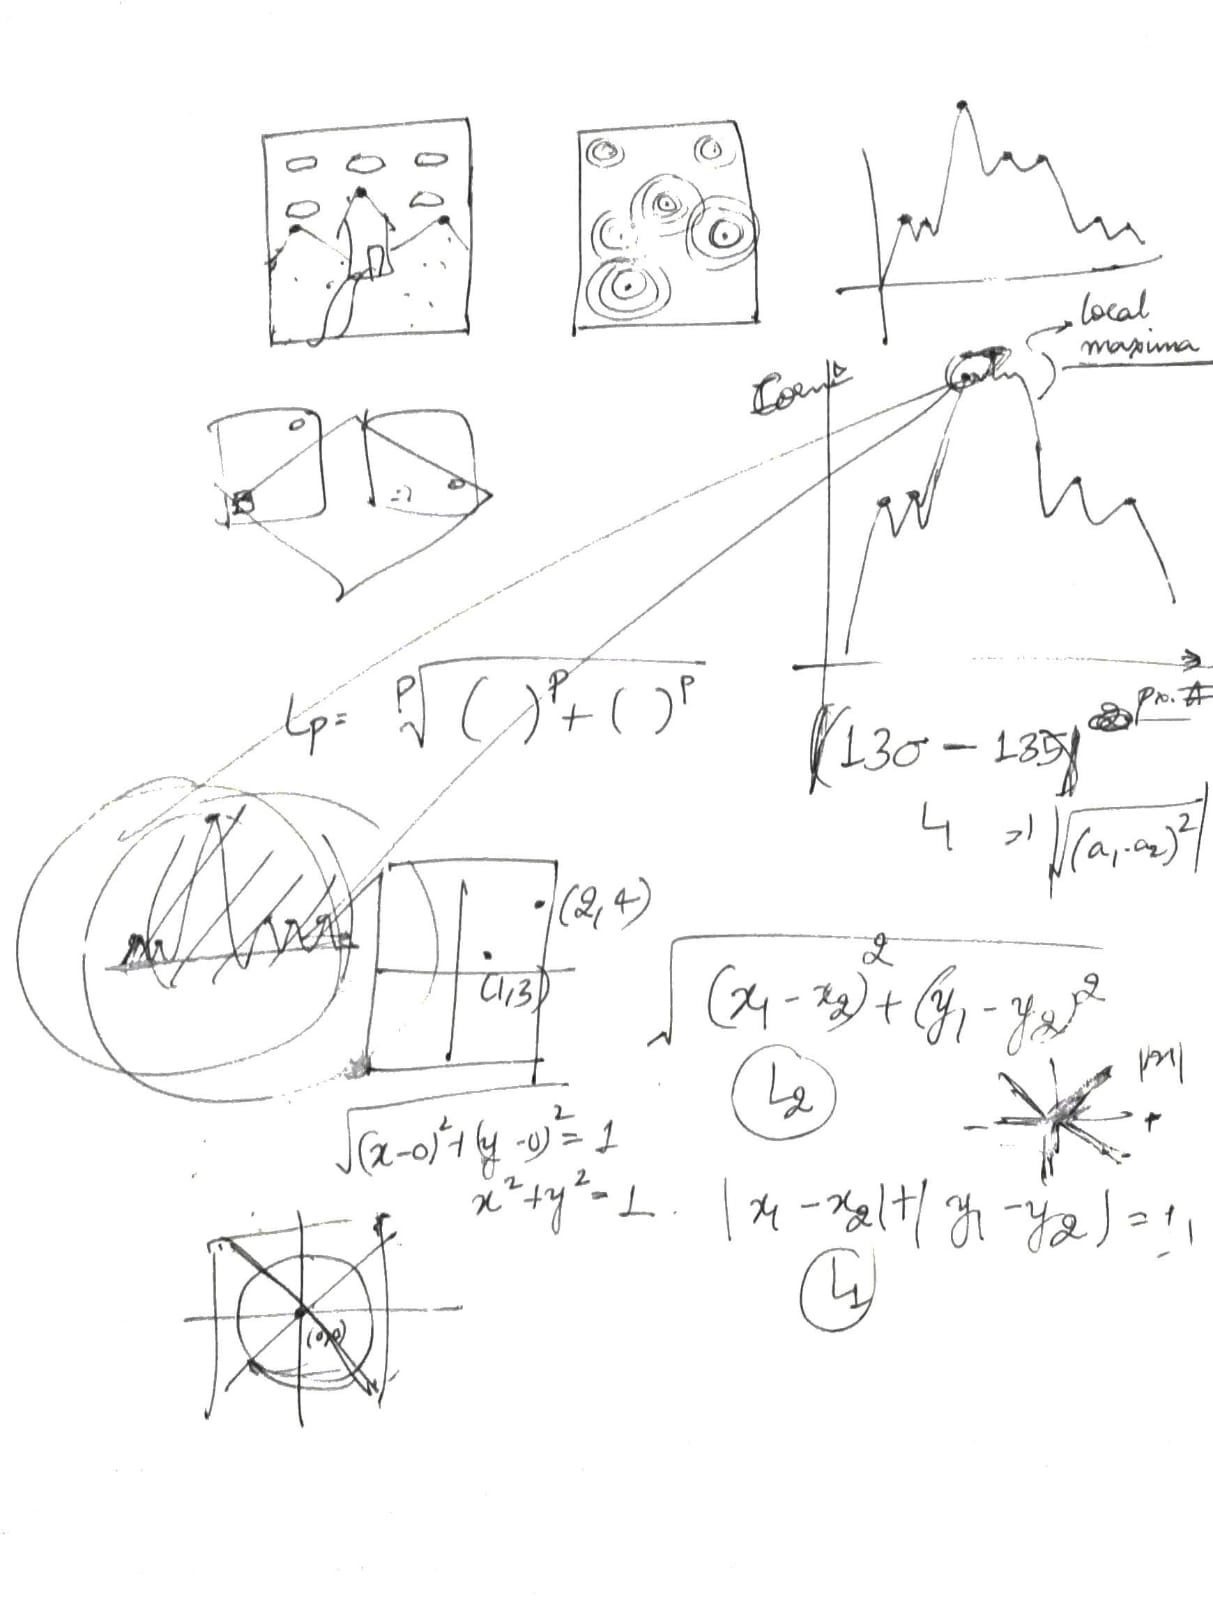 local
maxima
Lp = ᵖ√( )ᵖ + ( )ᵖ
(130 - 135)
L1 => |√(a₁-a₂)²|
(2,4)
(1,3)
√(x₁ - x₂)² + (y₁ - y₂)²
L2
|x|
- +
√(x-0)² + (y-0)² = 1
x² + y² = 1.
|x₁ - x₂| + |y₁ - y₂| = 1
L1
(0,0)